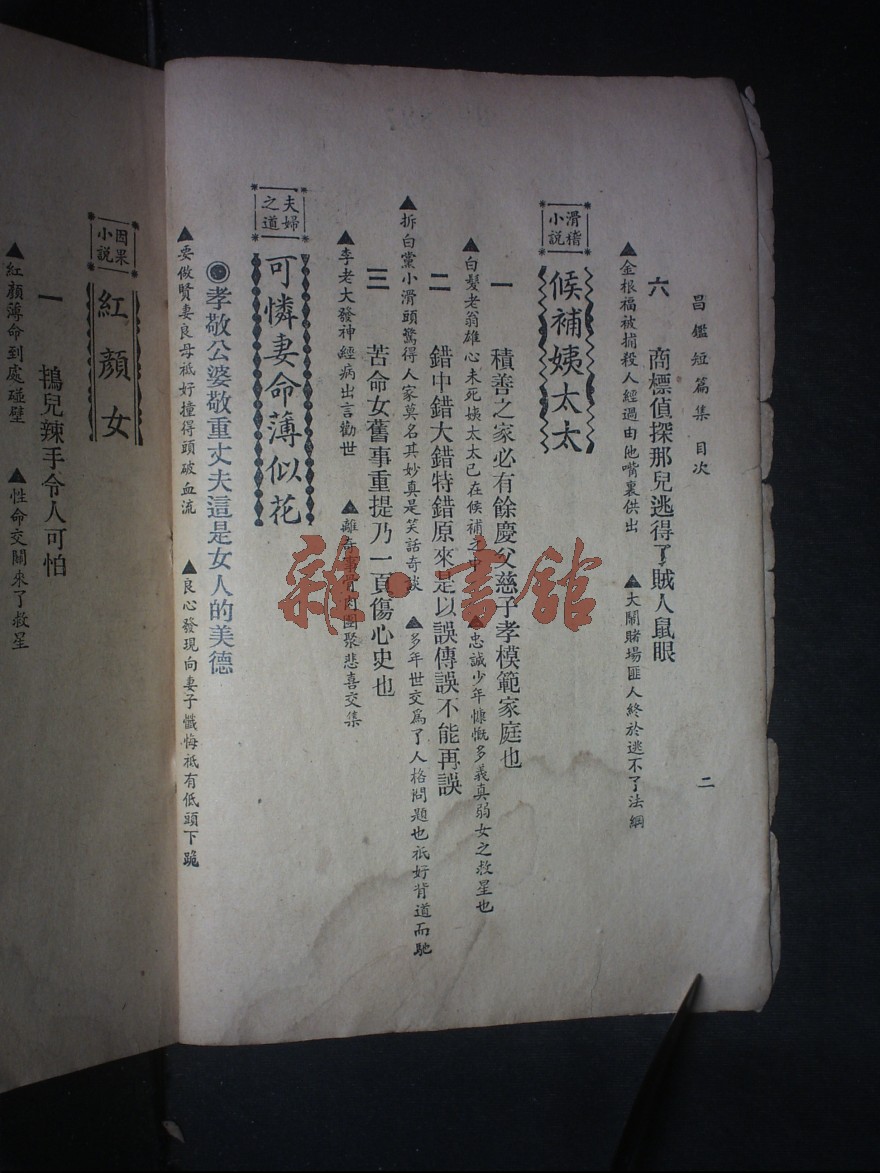 昌鑑短篇集 目次
二
六 商標偵探那兒逃得了賊人鼠眼
▲金根福被捕殺人經過由他嘴裏供出 ▲大鬧賭場匪人終於逃不了法網
滑稽小說
候補姨太太
一 積善之家必有餘慶父慈子孝模範家庭也
▲白髮老翁雄心未死姨太太已在候補之中 ▲忠誠少年慷慨多義真弱女之救星也
二 錯中錯大錯特錯原來是以誤傳誤不能再誤
▲拆白黨小滑頭驚得人家莫名其妙真是笑話奇談 ▲多年世交爲了人格問題也祇好背道而馳
三 苦命女舊事重提乃一頁傷心史也
▲李老大發神經病出言勸世 ▲離奇骨肉團聚悲喜交集
夫婦之道
可憐妻命薄似花
◉孝敬公婆敬重丈夫這是女人的美德
▲要做賢妻良母祇好撞得頭破血流 ▲良心發現向妻子懺悔祇有低頭下跪
因果小說
紅顏女
一 搗兒辣手令人可怕
▲紅顏薄命到處碰壁 ▲性命交關來了救星
雜·書館